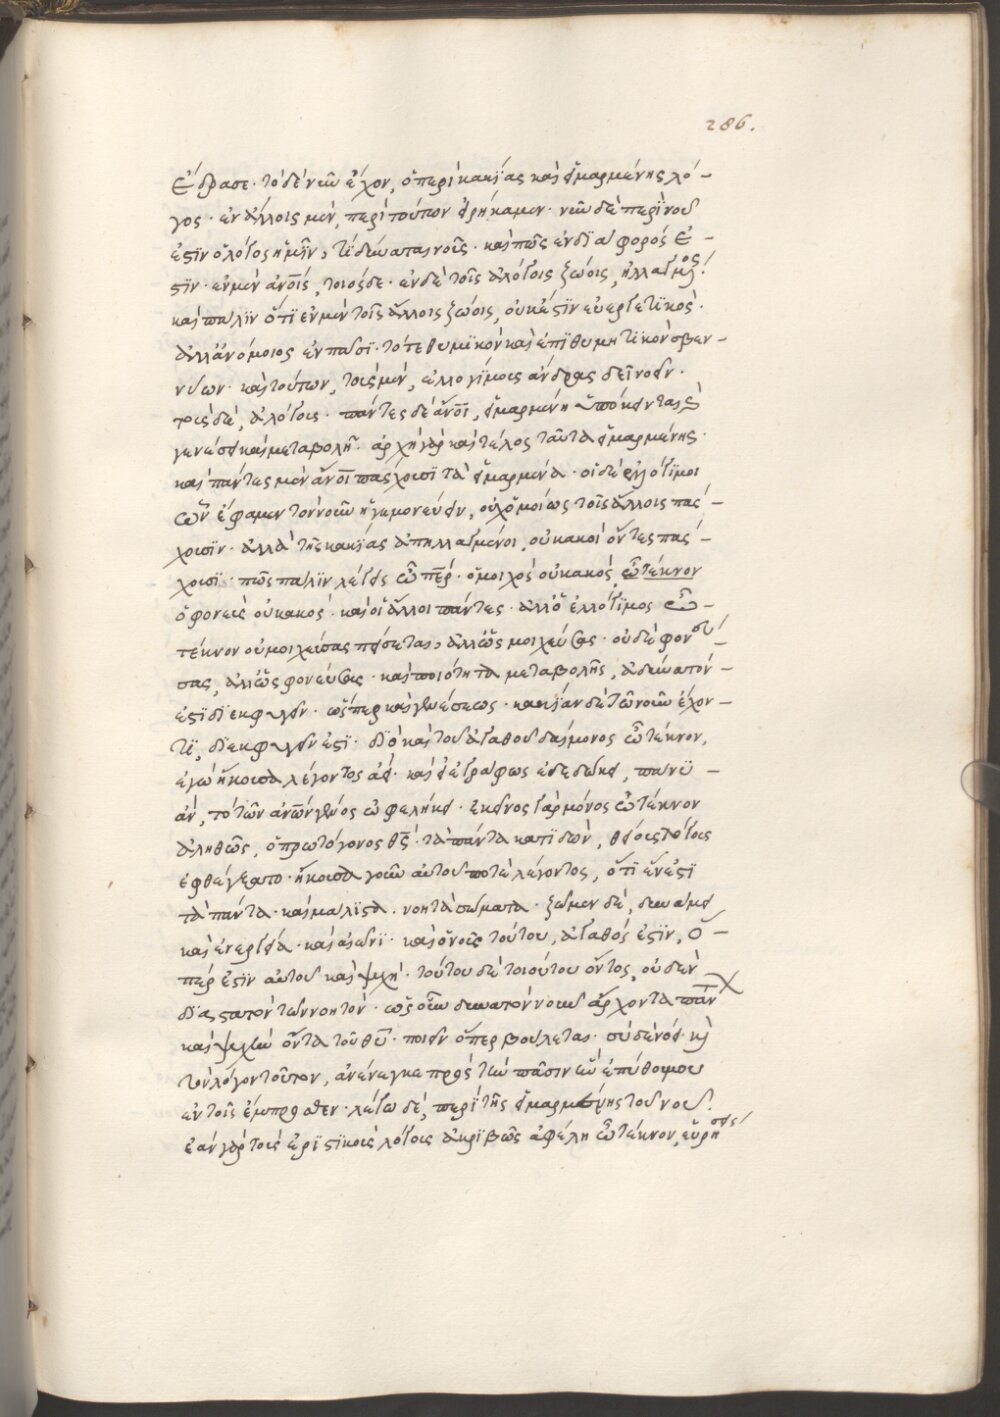 286.
ἔδρασε· τὸ δὲ νῦν ἔχον, ὁ περὶ κακίας καὶ εἱμαρμένης λό-
γος· ἐν ἄλλοις μὲν, περὶ τούτων εἰρήκαμεν· νῦν δὲ περὶ νοῦ
ἐστὶν ὁ λόγος ἡμῖν, τί δύναται νοῦς· καὶ πῶς ἐνδιάφορός ἐ-
στιν· ἐν μὲν ἀνοις, τοιόσδε· ἐν δὲ τοῖς ἀλόγοις ζώοις, ἠλλαγμένος·
καὶ πάλιν ὅτι ἐν μὲν τοῖς ἄλλοις ζώοις, οὐκ ἐστὶν εὐεργετικὸς·
ἀλλ' ἀνόμοιος ἐν πᾶσι· τό τε θυμικὸν καὶ ἐπιθυμητικὸν σβεν-
νύων· καὶ τούτων, τοὺς μὲν, ἐλλογίμους ἄνδρας δεῖ νοεῖν·
τοὺς δὲ, ἀλόγους· πάντες δὲ ἄνοι, εἱμαρμένῃ ὑπόκεινται καὶ
γενέσει καὶ μεταβολῇ· ἀρχὴ γὰρ καὶ τέλος ταῦτα εἱμαρμένης·
καὶ πάντες μὲν ἄνοι πάσχουσι τὰ εἱμαρμένα· οἱ δὲ ἐλλόγιμοι
ὧν ἔφαμεν τὸν νοῦν ἡγεμονεύειν, οὐχ ὁμοίως τοῖς ἄλλοις πάσ-
χουσιν· ἀλλὰ τῆς κακίας ἀπηλλαγμένοι, οὐ κακοὶ ὄντες πάσ-
χουσι· πῶς πάλιν λέγεις ὦ περ· ὁ μοιχὸς οὐ κακὸς, ὦ τέκνον
ὁ φονεὺς οὐ κακὸς· καὶ οἱ ἄλλοι πάντες· ἀλλ' ὁ ἐλλόγιμος ὦ
τέκνον οὐ μοιχεύσας πείσεται, ἀλλ' ὡς μοιχεύσας· οὐδὲ φονεύ-
σας, ἀλλ' ὡς φονεύσας· καὶ ποιότητα μεταβολῆς, ἀδύνατόν
ἐστι διεκφυγεῖν· ὥσπερ καὶ γενέσεως· κακίαν δὲ τῷ νοῦν ἔχον-
τι, διεκφυγεῖν ἐστι· διὸ καὶ τοῦ ἀγαθοῦ δαίμονος ὦ τέκνον,
ἐγὼ ἤκουσα λέγοντος ἀεί· καὶ εἰ ἐγγράφως ἐδεδώκει, πάνυ
ἂν, τὸ τῶν ἀνων γένος ὠφελήκει· ἐκεῖνος γὰρ μόνος ὦ τέκνον
ἀληθῶς, ὁ πρωτόγονος θς· τὰ πάντα κατιδὼν, θείους λόγους
ἐφθέγξατο· ἤκουσα γοῦν αὐτοῦ ποτὲ λέγοντος, ὅτι ἕν ἐστι
τὰ πάντα· καὶ μάλιστα· νοητὰ σώματα· ζῶμεν δὲ, δυνάμει
καὶ ἐνεργείᾳ· καὶ αἰῶνι· καὶ ὁ νοῦς τούτου, ἀγαθός ἐστιν, ὅ-
πέρ ἐστιν αὐτοῦ καὶ ψυχή· τούτου δὲ τοιούτου ὄντος, οὐδὲν
διαστατὸν τῶν νοητῶν· ὡς οὖν δυνατὸν νοῦν ἄρχοντα πάντων
καὶ ψυχὴν ὄντα τοῦ θυ· ποιεῖν ὅπερ βούλεται· σὺ δὲ νόει· καὶ
τὸν λόγον τοῦτον, ἀνένεγκε πρὸς τὴν πᾶσιν ἣν ἐπύθου μου
ἐν τοῖς ἔμπροσθεν· λέγω δὲ, περὶ τῆς εἱμαρμένης τοῦ νοῦ·
ἐὰν γὰρ τοὺς ἐριστικοὺς λόγους ἀκριβῶς ἀφέλῃ ὦ τέκνον, εὑρήσεις